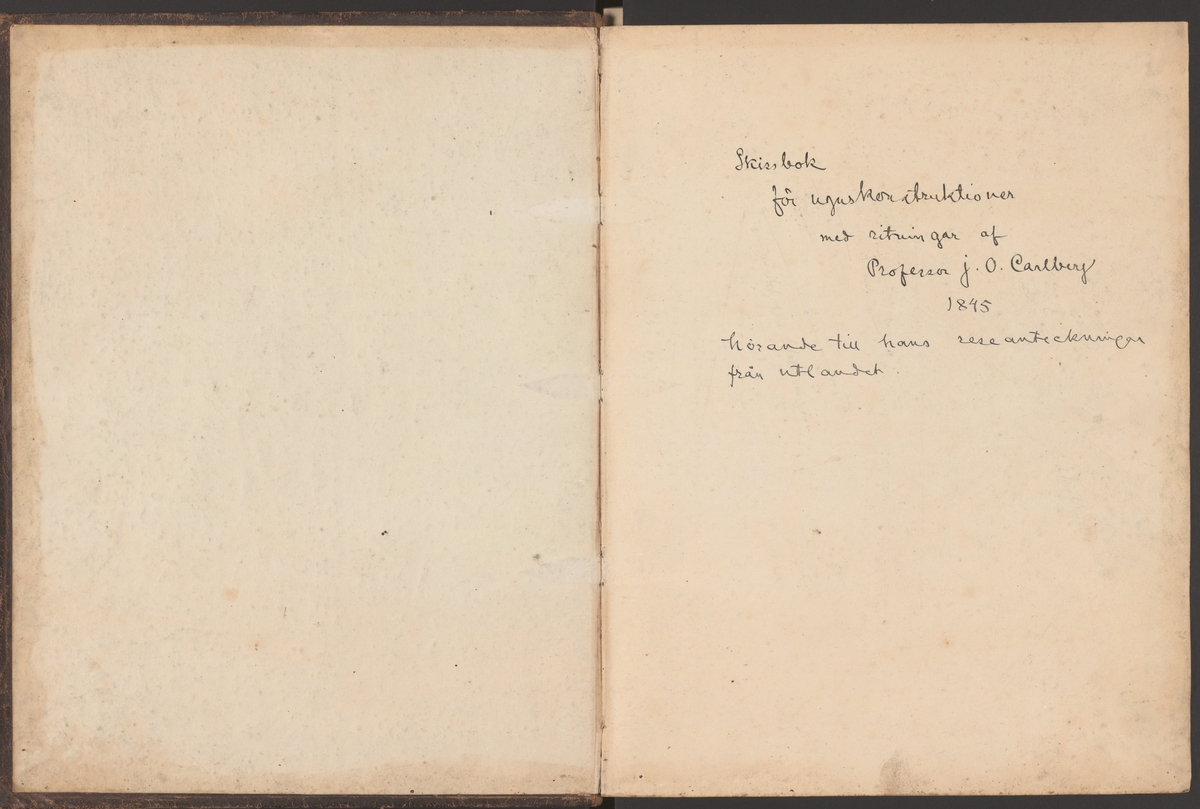 Skissbok
för ugnskonstruktioner
med ritningar af
Professor J. O. Carlberg
1845
hörande till hans reseanteckningar
från utlandet.